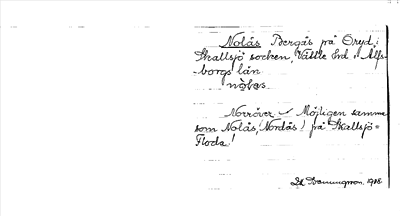 Nolås Bergås på Öryd i
Skallsjö socken, Vättle hd i Älfs-
borgs län
nolos
Norröver Möjligen samma
som Nolås, (Nordås) på Skallsjö=
Floda!
1918